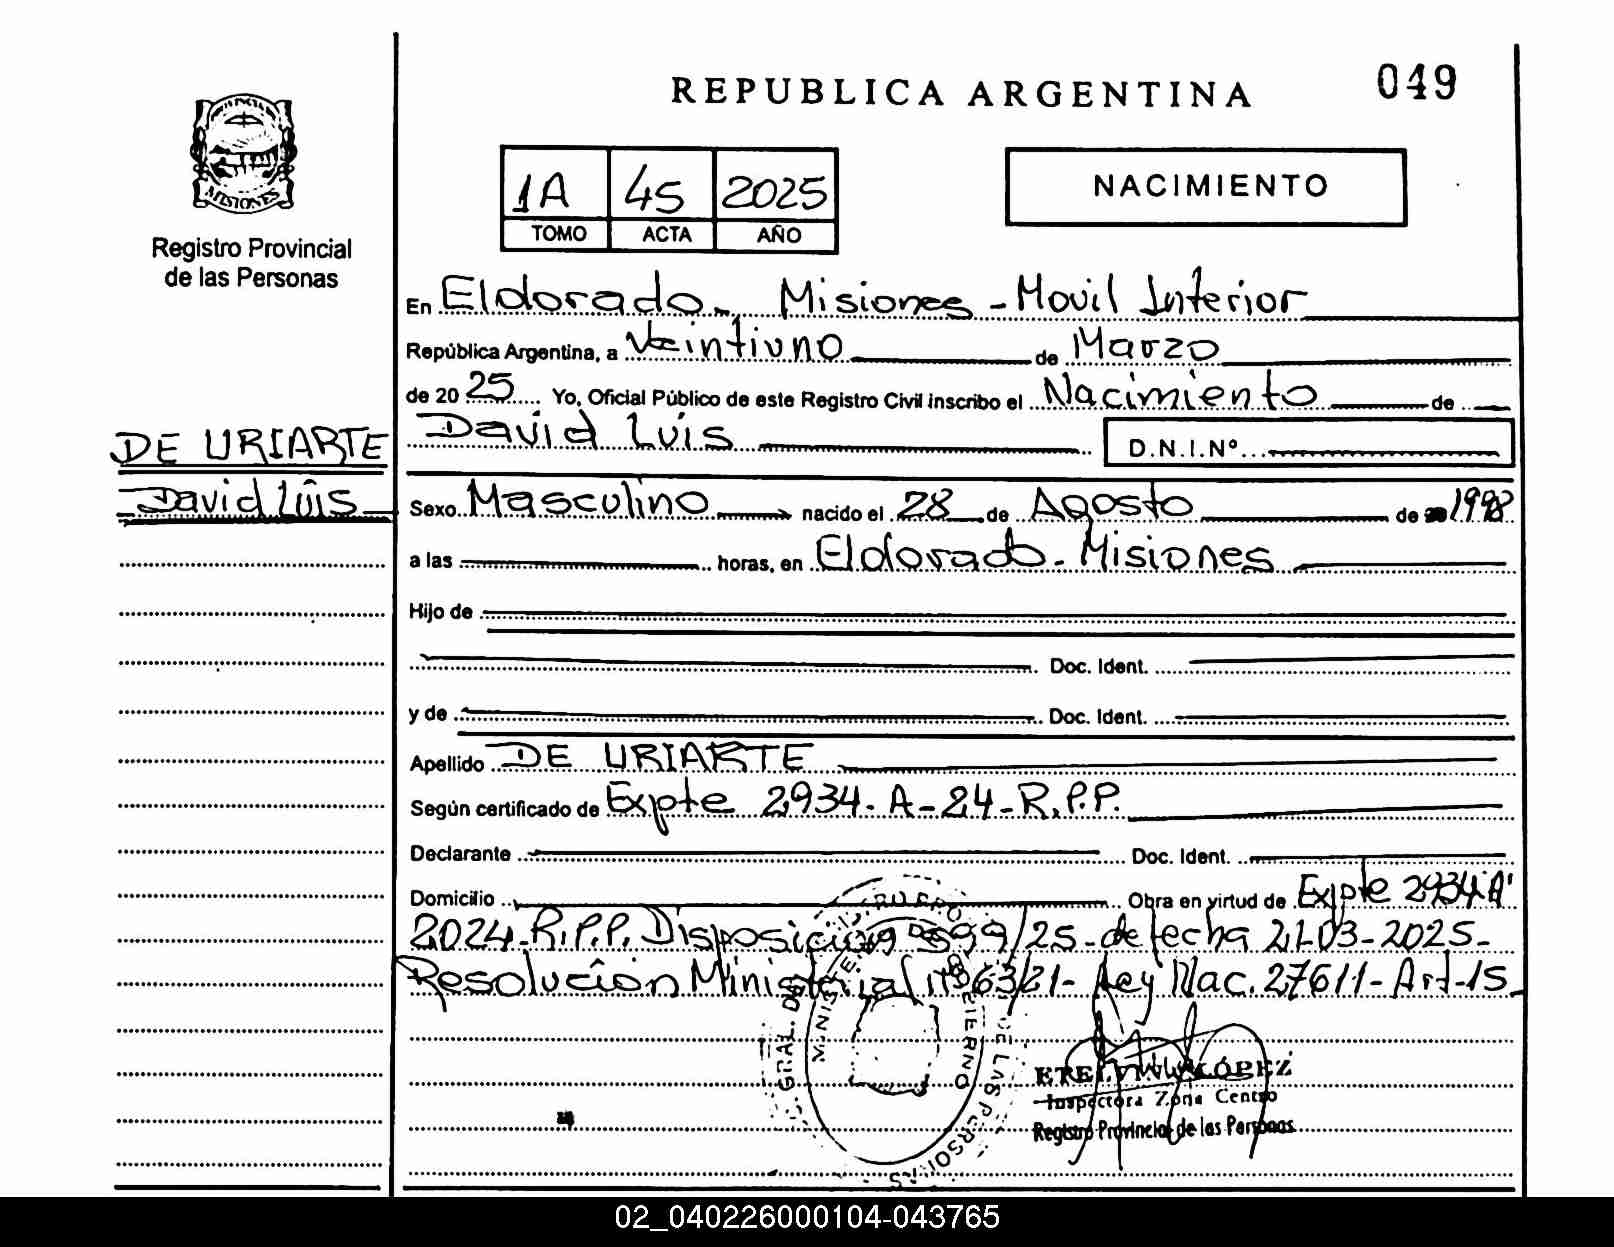 REPUBLICA ARGENTINA
049
MISIONES
Registro Provincial
de las Personas
1A 45 2025
TOMO ACTA AÑO
NACIMIENTO
En Eldorado - Misiones - Movil Interior
República Argentina, a Veintiuno de Marzo
de 20 25 Yo, Oficial Público de este Registro Civil inscribo el Nacimiento de
David Luis D.N.I.Nº
DE URIARTE
David Luis
Sexo Masculino nacido el 28 de Agosto de 1998
a las horas, en Eldorado - Misiones
Hijo de
Doc. Ident.
y de Doc. Ident.
Apellido DE URIARTE
Según certificado de Expte 2934-A-24-R.P.P.
Declarante Doc. Ident.
Domicilio Obra en virtud de Expte 2934 A'
2024-R.P.P. Disposición 599/25 - de fecha 21-03-2025-
Resolución Ministerial nº 63/21 - Ley Nac. 27611 - Art-15
ETELVINA LÓPEZ
Inspectora Zona Centro
Registro Provincial de las Personas
02_040226000104-043765